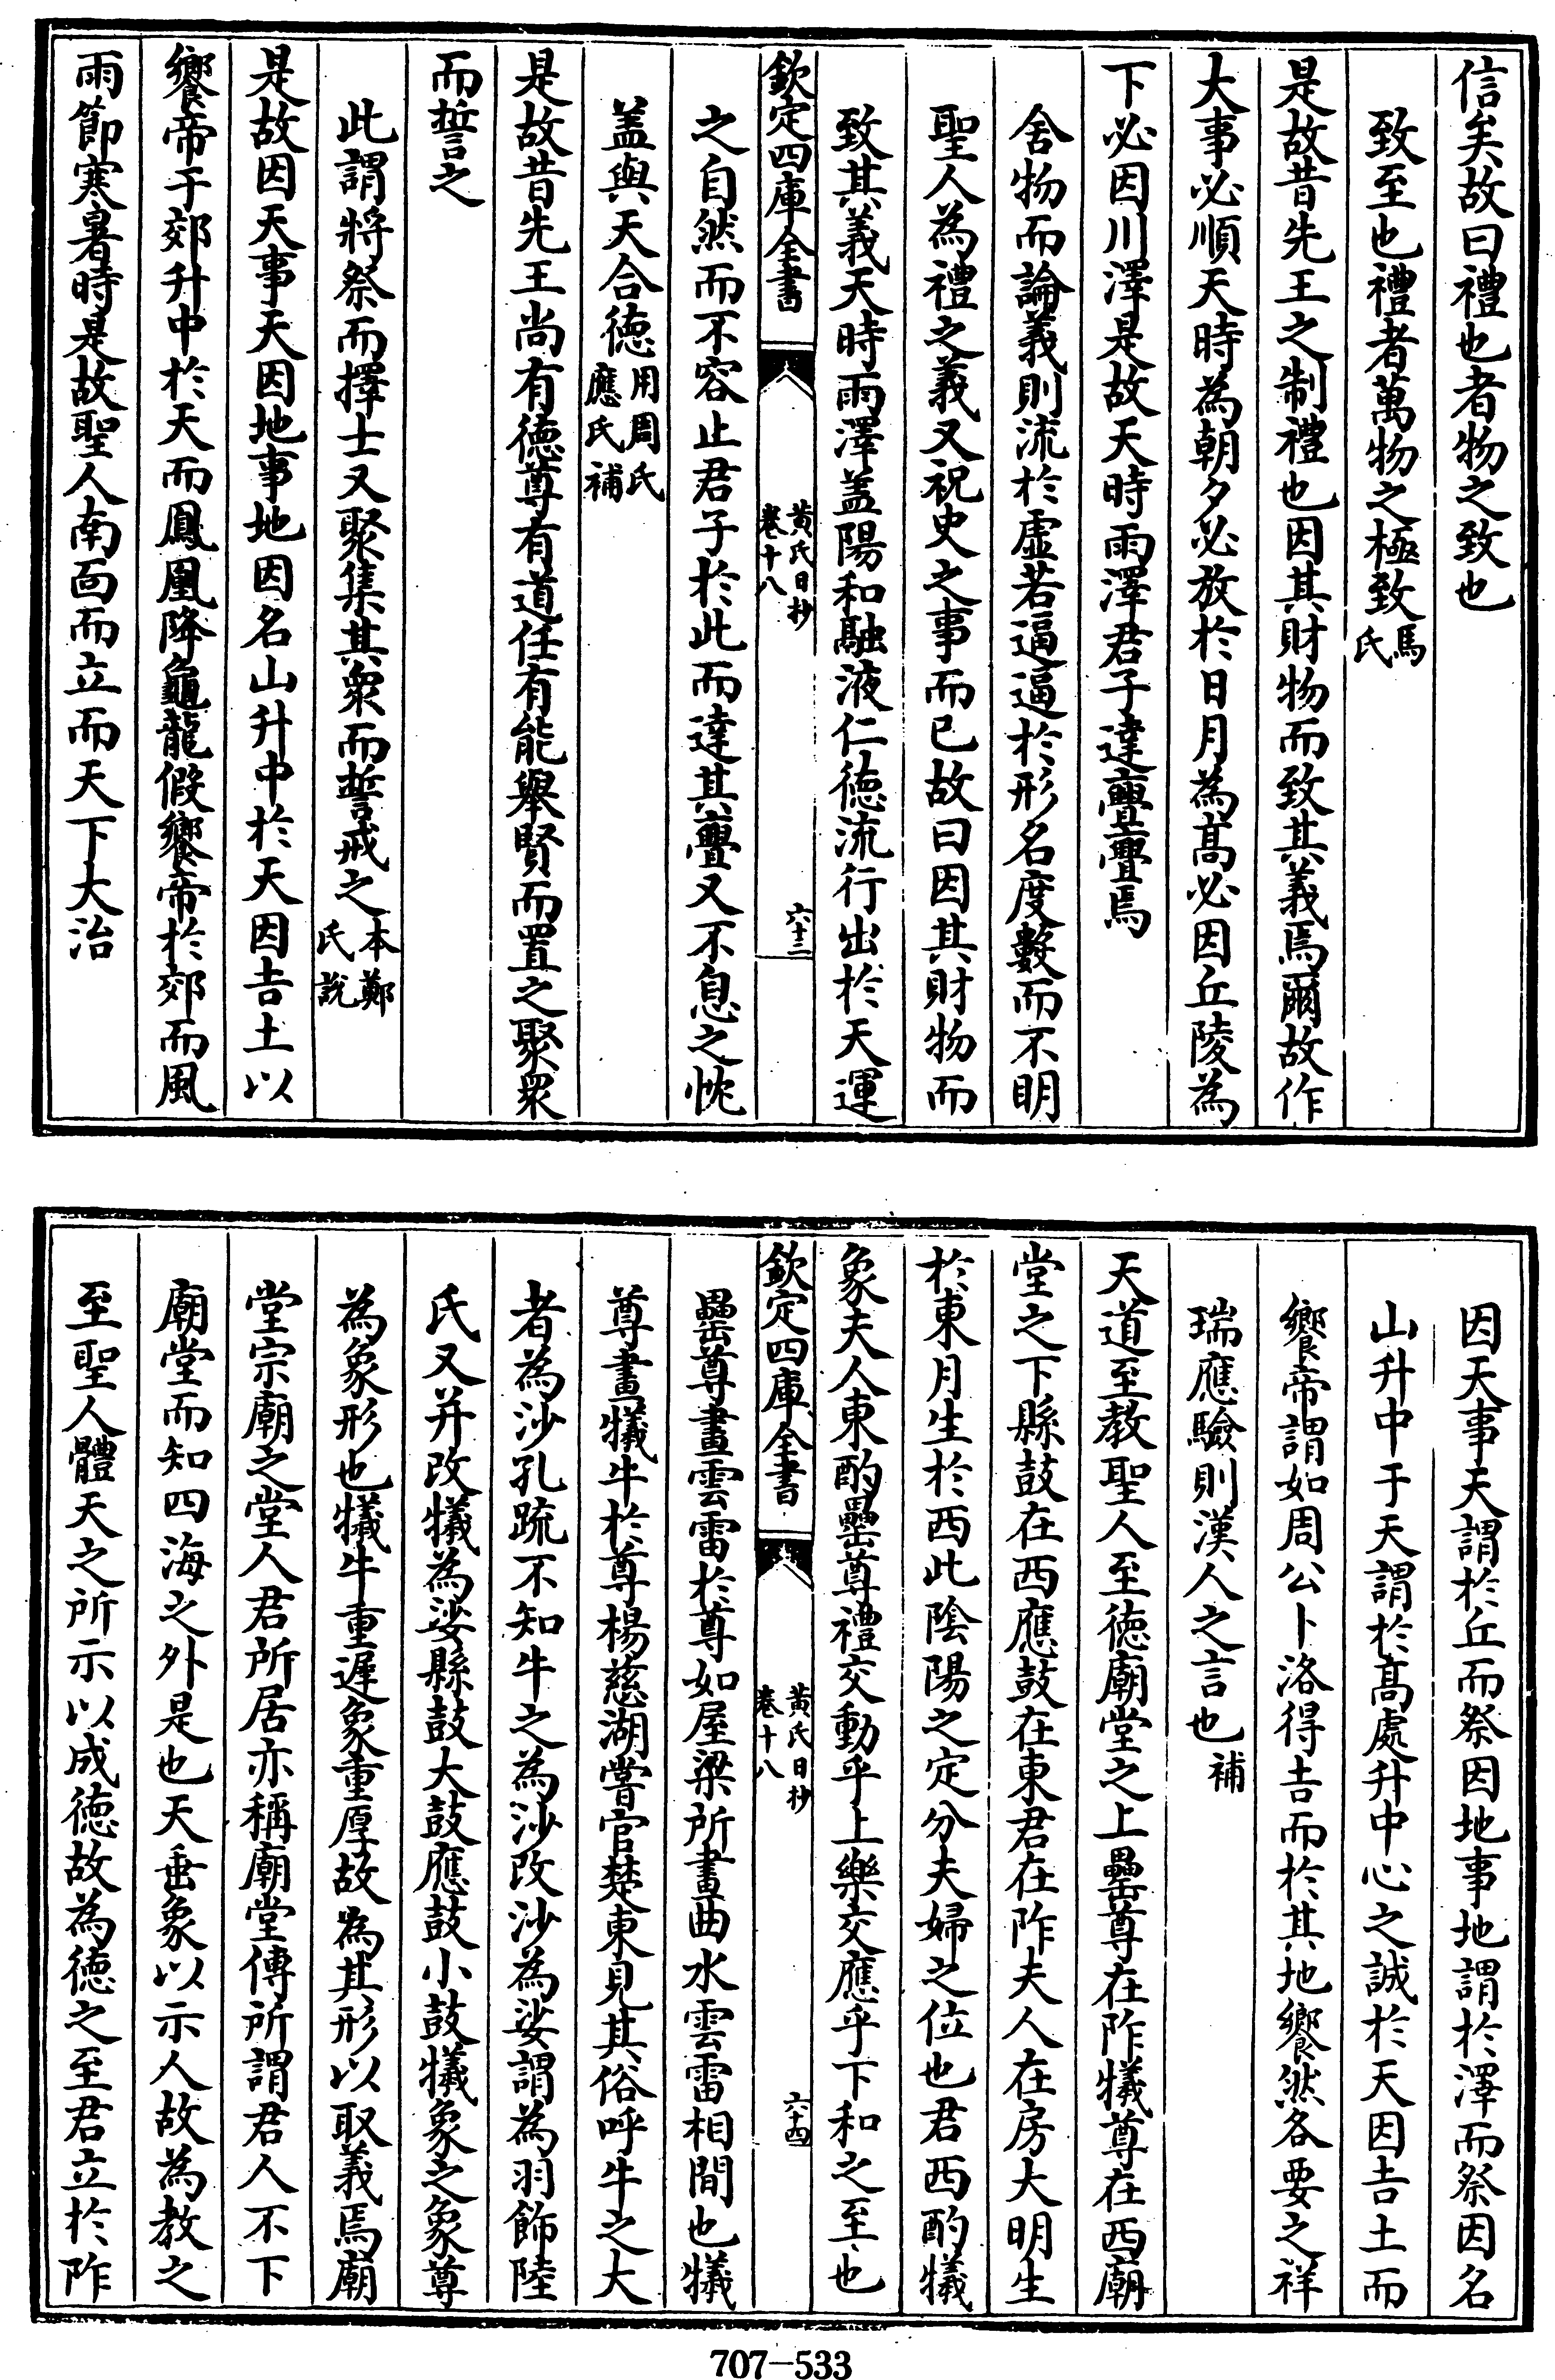 信矣故曰禮也者物之致也
致至也禮者萬物之極致馬氏
是故昔先王之制禮也因其財物而致其義焉爾故作
大事必順天時為朝夕必放於日月為髙必因丘陵為
下必因川澤是故天時雨澤君子達亹亹焉
舍物而論義則流於虚若逼逼於形名度數而不明
聖人為禮之義又祝史之事而已故曰因其財物而
致其義天時雨澤盖陽和融液仁徳流行出於天運
欽定四庫全書
黄氏日抄
卷十八
六十三
之自然而不容止君子於此而達其亹又不息之忱
盖與天合徳用周氏應氏補
是故昔先王尚有徳尊有道任有能舉賢而置之聚衆
而誓之
此謂将祭而擇士又聚集其衆而誓戒之本鄭氏説
是故因天事天因地事地因名山升中於天因吉土以
饗帝于郊升中於天而鳳凰降龜龍假饗帝於郊而風
雨節寒暑時是故聖人南面而立而天下大治
因天事天謂於丘而祭因地事地謂於澤而祭因名
山升中于天謂於髙處升中心之誠於天因吉土而
饗帝謂如周公卜洛得吉而於其地饗然各要之祥
瑞應驗則漢人之言也補
天道至教聖人至徳廟堂之上罍尊在阼犧尊在西廟
堂之下縣鼓在西應鼓在東君在阼夫人在房大明生
於東月生於西此陰陽之定分夫婦之位也君西酌犧
象夫人東酌罍尊禮交動乎上樂交應乎下和之至也
欽定四庫全書
黄氏日抄
卷十八
六十四
罍尊畫雲雷於尊如屋梁所畫曲水雲雷相間也犧
尊畫犧牛於尊楊慈湖嘗官楚東見其俗呼牛之大
者為沙孔疏不知牛之為沙改沙為娑謂為羽飾陸
氏又并改犧為娑縣鼓大鼓應鼓小鼓犧象之象尊
為象形也犧牛重遲象重厚故為其形以取義焉廟
堂宗廟之堂人君所居亦稱廟堂傳所謂君人不下
廟堂而知四海之外是也天垂象以示人故為教之
至聖人體天之所示以成徳故為徳之至君立於阼
707-533